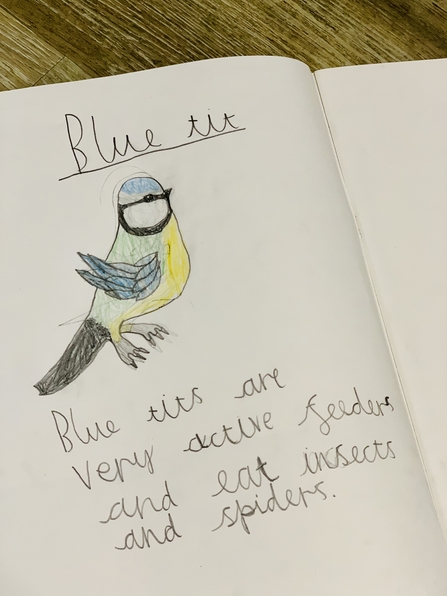 Blue tit
Blue tits are
very active feeders
and eat insects
and spiders.